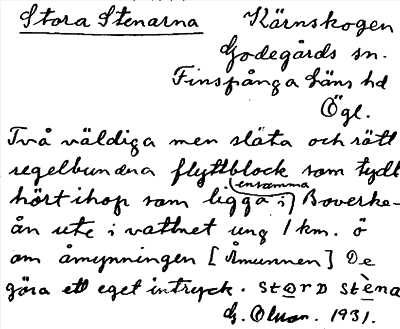 Stora Stenarna Kärnskogen
Godegårds sn.
Finspånga läns hd
Ögl.
Två väldiga men släta och rätt
regelbundna flyttblock som tydl
ensamma
hört ihop som ligga i Boverke-
ån ute i vattnet ung 1 km. ö
om åmynningen [Åmunnen] De
göra ett eget intryck.
G. Olson. 1931.